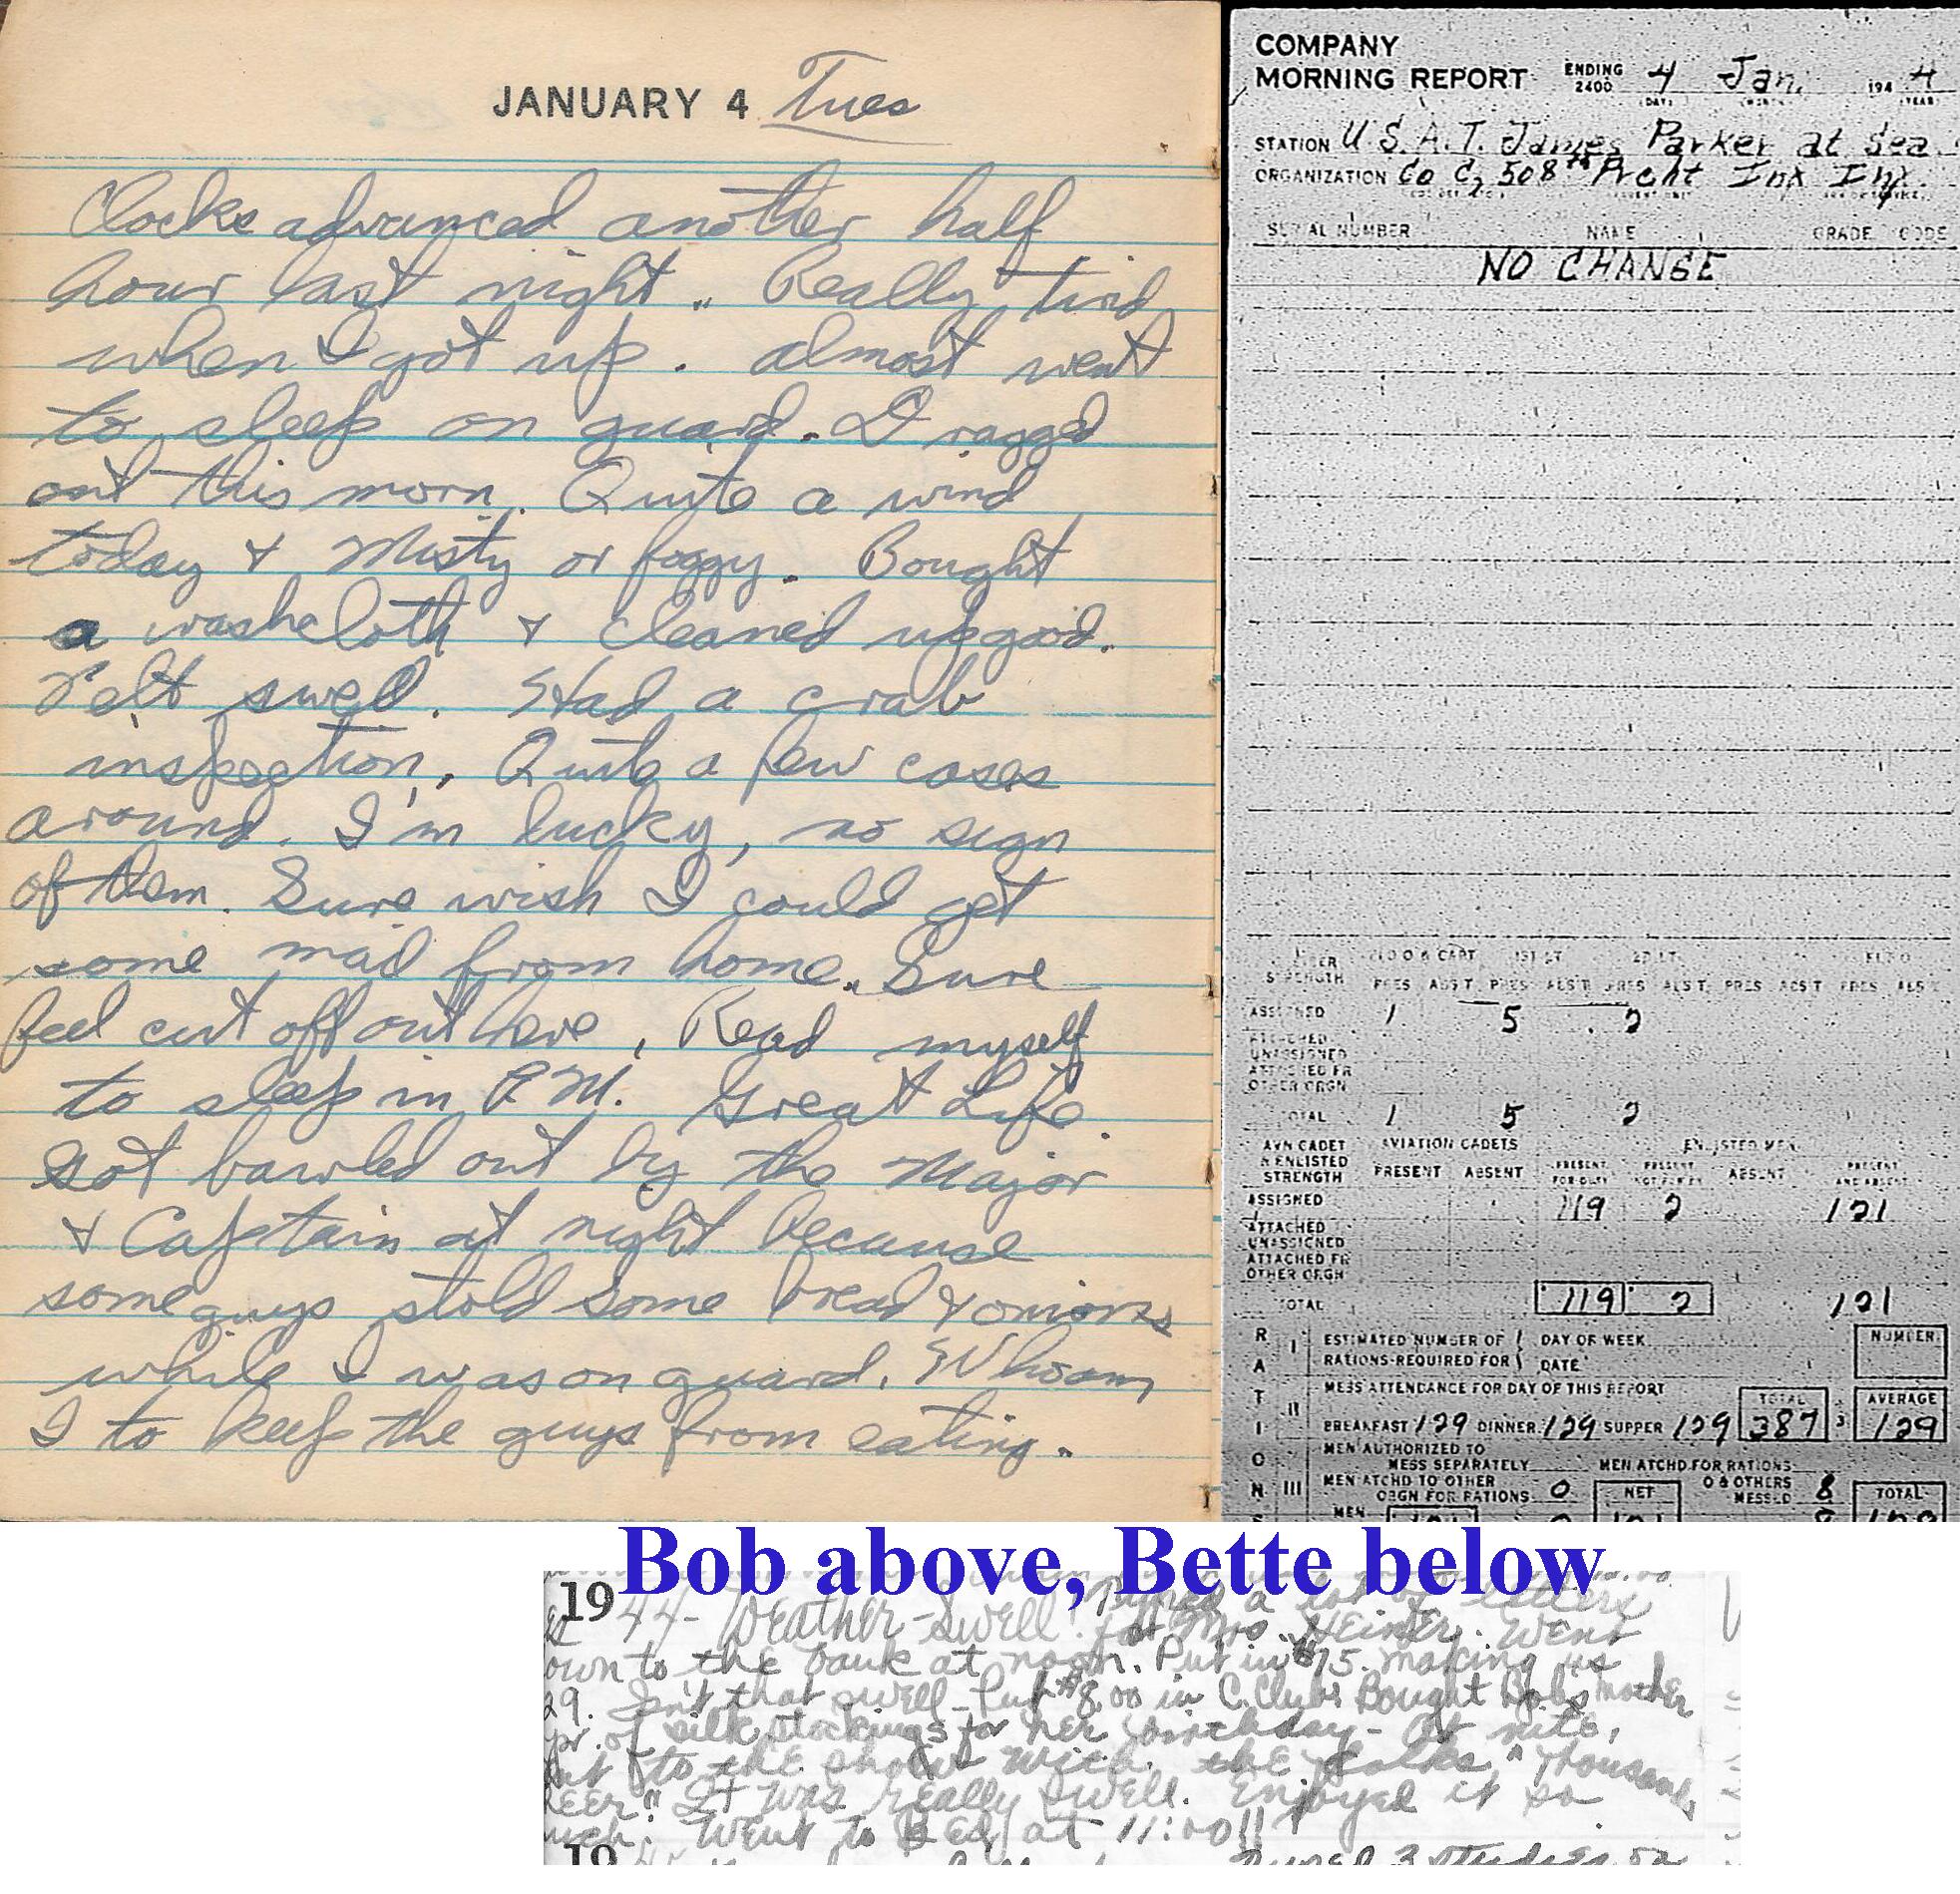 JANUARY 4 Tues
Clocks advanced another half
hour last night. Really tired
when I got up. Almost went
to sleep on guard. Dragged
out this morn. Quite a wind
today & Misty or foggy. Bought
a washcloth & cleaned up good.
Felt swell. Had a crab
inspection. Quite a few cases
around. I'm lucky, no sign
of them. Sure wish I could get
some mail from home. Sure
feel cut off out here. Read myself
to sleep in P.M. Great Life.
Got bawled out by the Major
& Captain at night because
some guys stold some bread & onions
while I was on guard. Whoam
I to keep the guys from eating.
COMPANY
MORNING REPORT ENDING 2400 4 Jan. 194 4
(DAY) (YEAR)
STATION U.S.A.T. James Parker at Sea
ORGANIZATION Co C, 508th Prcht Inf
SERIAL NUMBER NAME GRADE CODE
NO CHANGE
STRENGTH
ASSIGNED 1 5 2
ATTACHED
UNASSIGNED
ATTACHED FR
OTHER ORGN
TOTAL 1 5 2
AVN CADET & ENLISTED STRENGTH AVIATION CADETS ENLISTED MEN
PRESENT ABSENT PRESENT FOR DUTY PRESENT NOT FOR DUTY ABSENT PRESENT AND ABSENT
ASSIGNED 119 2 121
ATTACHED
UNASSIGNED
ATTACHED FR
OTHER ORGN
TOTAL 119 2 121
RATIONS
I ESTIMATED NUMBER OF DAY OF WEEK NUMBER
RATIONS REQUIRED FOR DATE
II MESS ATTENDANCE FOR DAY OF THIS REPORT TOTAL AVERAGE
BREAKFAST 129 DINNER 129 SUPPER 129 387 3 129
III MEN AUTHORIZED TO
MESS SEPARATELY MEN ATCHD FOR RATIONS
MEN ATCHD TO OTHER
ORGN FOR RATIONS 0 NET O & OTHERS
MESSED 8 TOTAL
MEN
Bob above, Bette below
19 44 - Weather - Swell! Typed a lot of letters
for Mrs. Heimer. Went
own to the bank at noon. Put in $75. making us
29. Isn't that swell - Put $8.00 in C. Club. Bought Bob's Mother
pr. of silk stockings for her birthday - At nite,
nt to the show with the folks "Thousand
heer." It was really swell. Enjoyed it so
uch. Went to Bed at 11:00!!
19